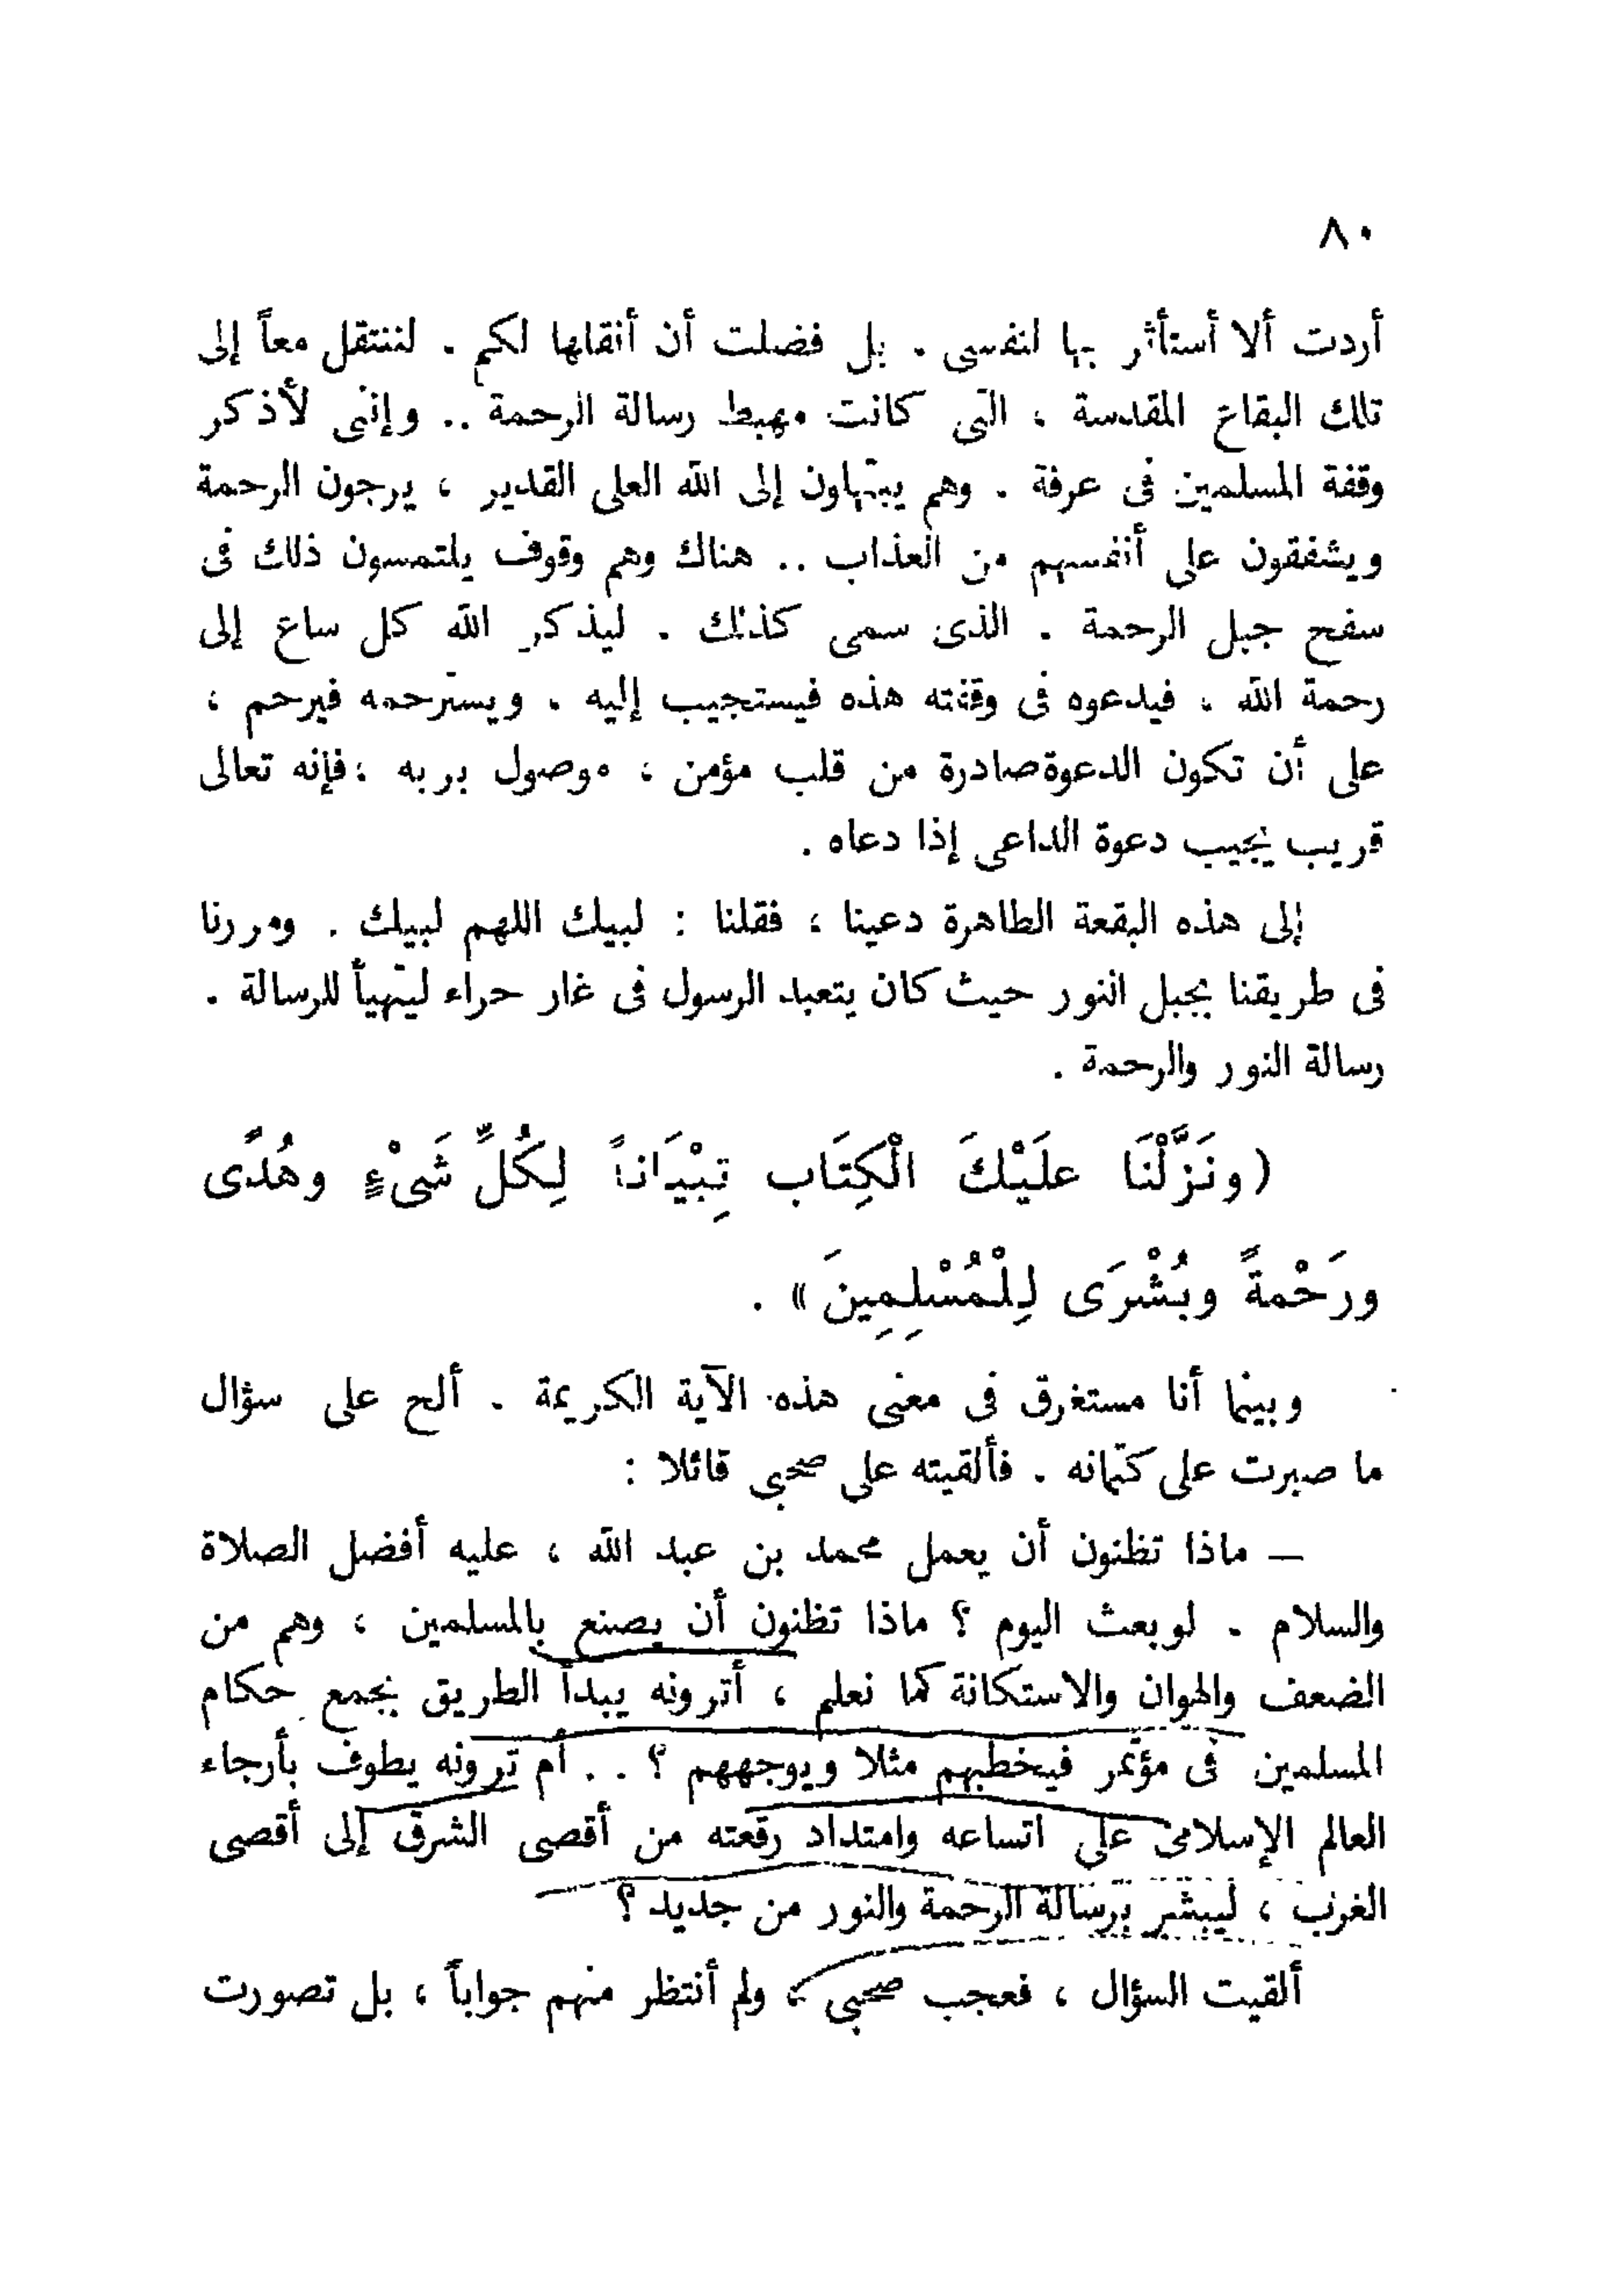 ٨٠
أردت ألا أستأثر بها لنفسى . بل فضلت أن أنقلها لكم . لننتقل معاً إلى
تلك البقاع المقدسة ، التى كانت مهبط رسالة الرحمة .. وإننى لأذكر
وقفة المسلمين فى عرفة . وهم يبتهلون إلى الله العلى القدير ، يرجون الرحمة
ويشفقون على أنفسهم من العذاب .. هناك وهم وقوف يلتمسون ذلك فى
سفح جبل الرحمة . الذى سمى كذلك . ليذكر الله كل ساع إلى
رحمة الله ، فيدعوه فى وقفته هذه فيستجيب إليه . ويسترحمه فيرحم ،
على أن تكون الدعوة صادرة من قلب مؤمن ، موصول بربه ؛ فإنه تعالى
قريب يجيب دعوة الداعى إذا دعاه .
إلى هذه البقعة الطاهرة دعينا ، فقلنا : لبيك اللهم لبيك . ومررنا
فى طريقنا بجبل النور حيث كان يتعبد الرسول فى غار حراء ليتهيأ للرسالة .
رسالة النور والرحمة .
( ونَزَّلْنَا علَيْكَ الْكِتَاب تِبْيَاناً لِكُلِّ شَىْءٍ وهُدًى
ورَحْمةً وبُشْرَى لِلْمُسْلِمِينَ » .
وبينما أنا مستغرق فى معنى هذه الآية الكريمة . ألح على سؤال
ما صبرت على كتمانه . فألقيته على صحبى قائلا :
— ماذا تظنون أن يعمل محمد بن عبد الله ، عليه أفضل الصلاة
والسلام . لو بعث اليوم ؟ ماذا تظنون أن يصنع بالمسلمين ، وهم من
الضعف والهوان والاستكانة كما نعلم ، أترونه يبدأ الطريق بجمع حكام
المسلمين فى مؤتمر فيخطبهم مثلا ويوجههم ؟ .. أم ترونه يطوف بأرجاء
العالم الإسلامى على اتساعه وامتداد رقعته من أقصى الشرق إلى أقصى
الغرب ، ليبشر برسالة الرحمة والنور من جديد ؟
ألقيت السؤال ، فعجب صحبى ، ولم أنتظر منهم جواباً ، بل تصورت